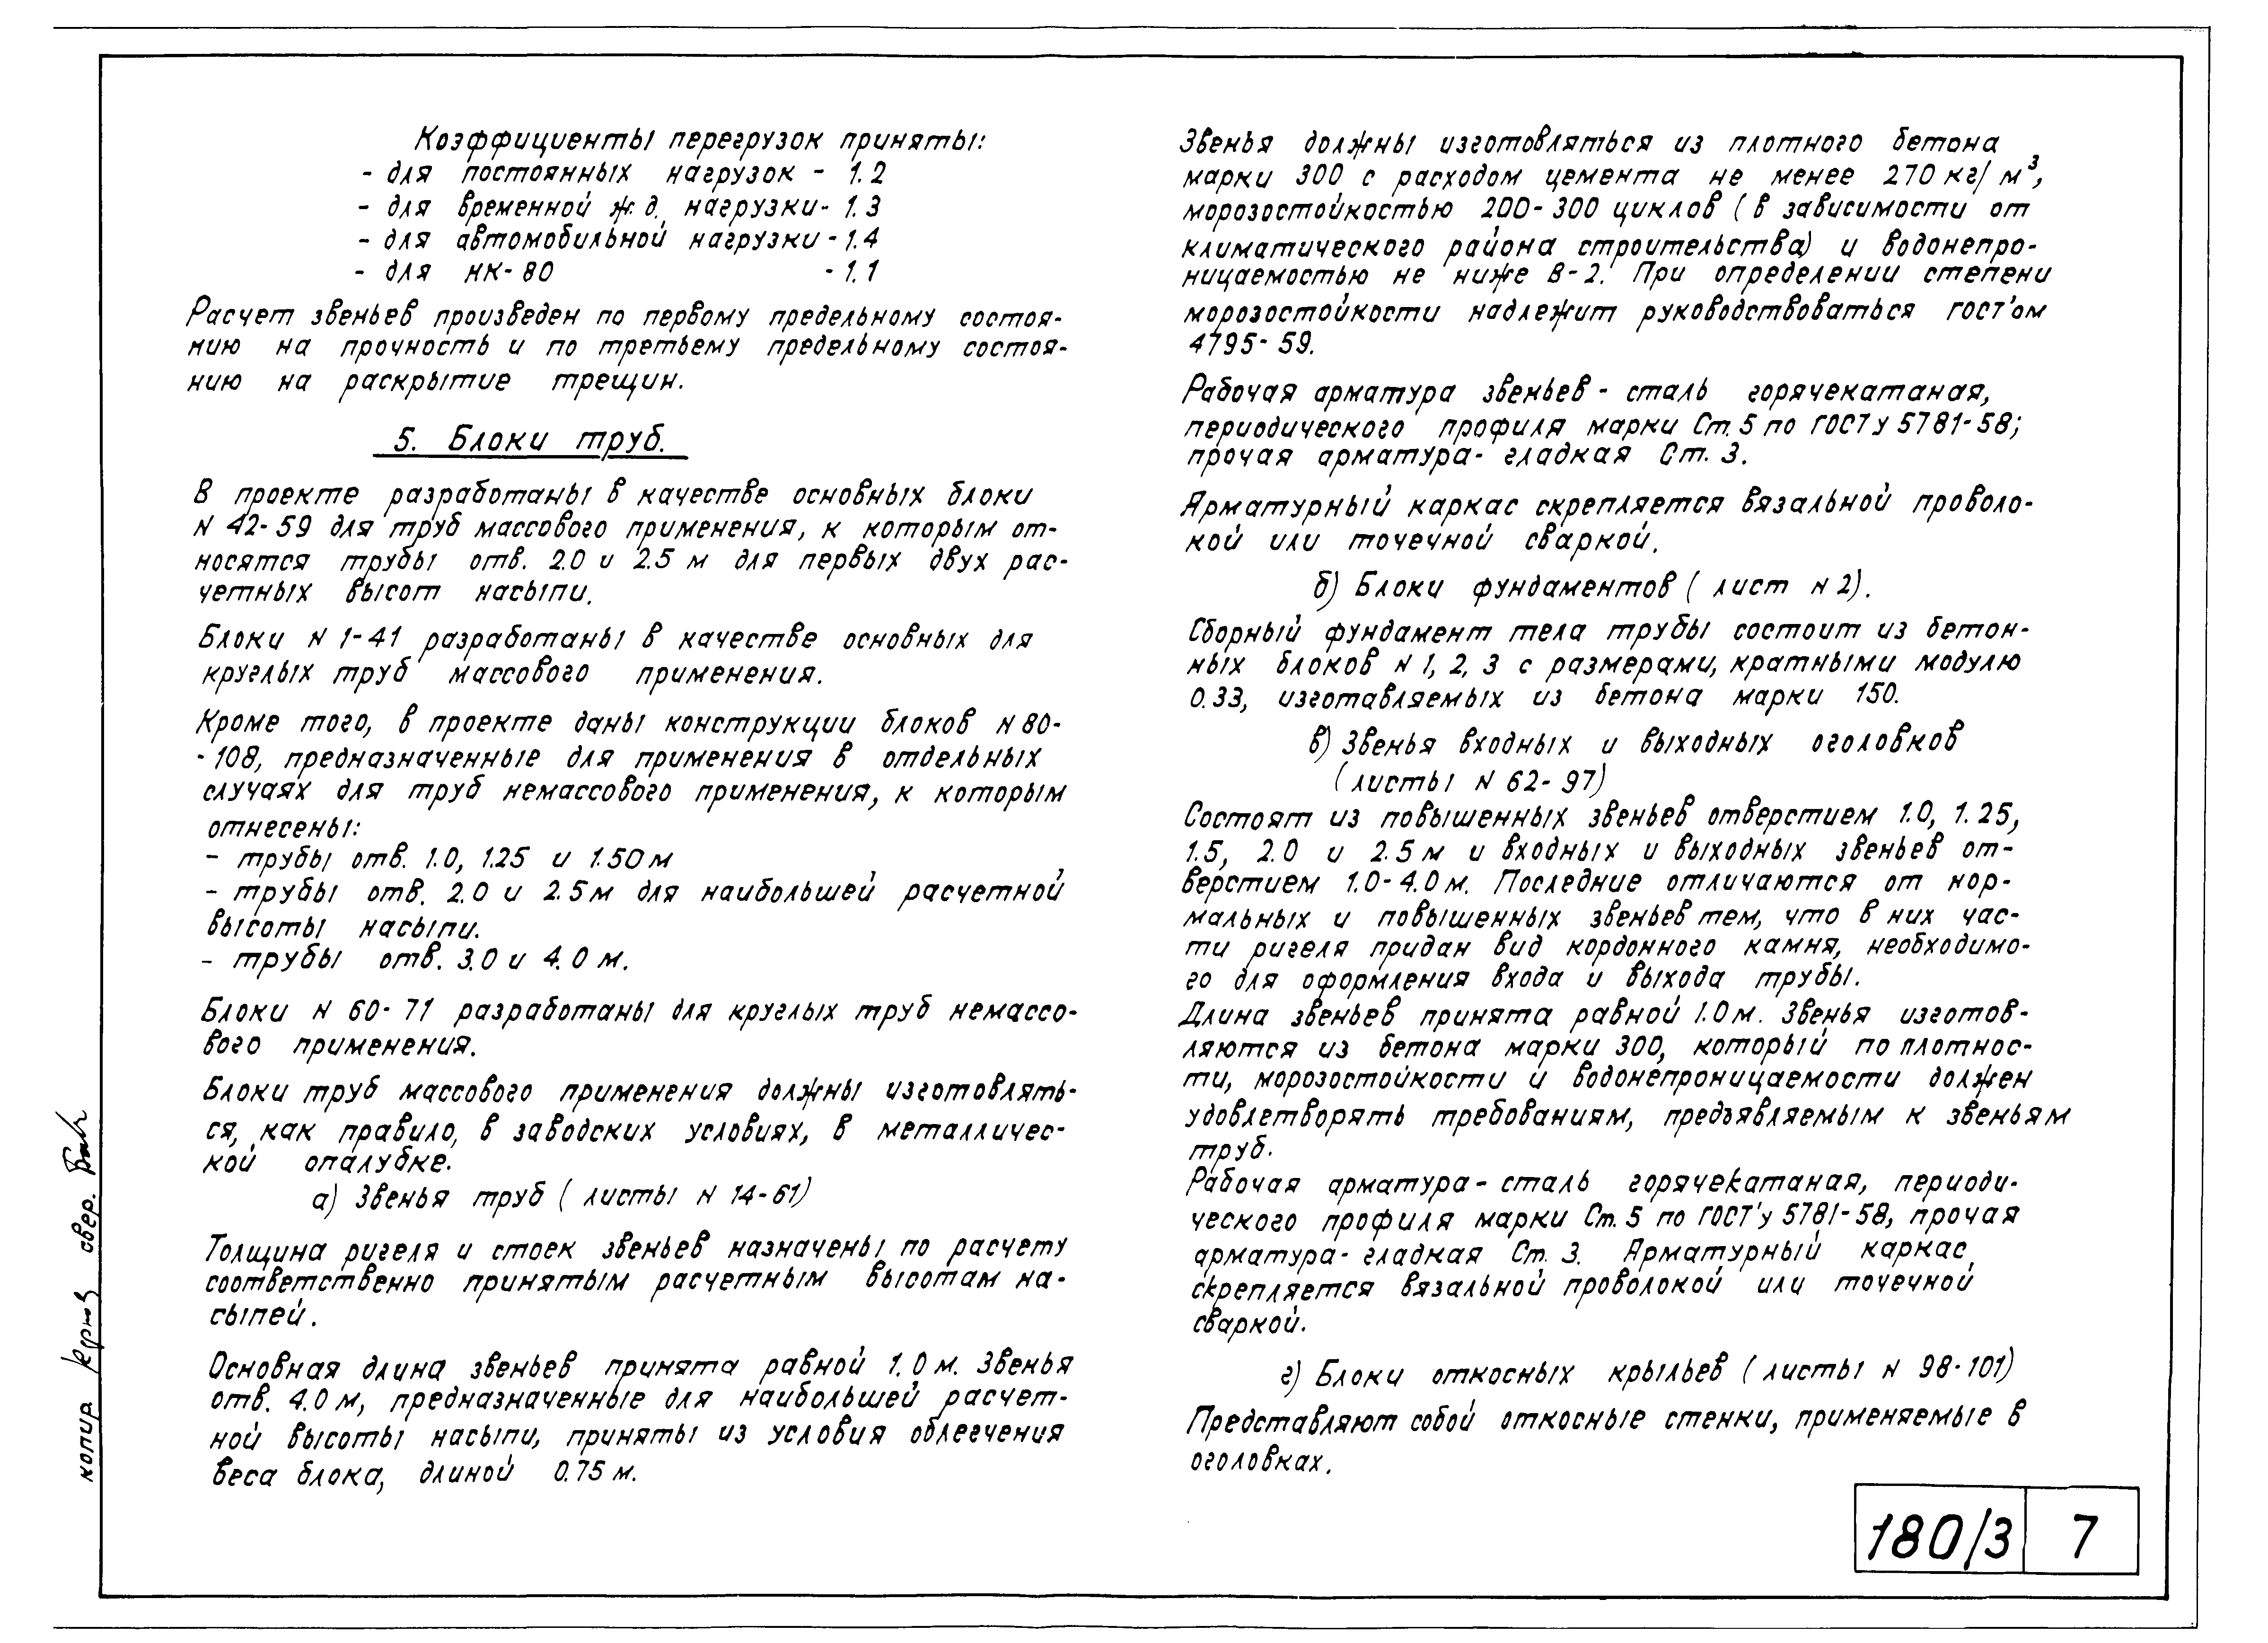 Коэффициенты перегрузок приняты:
- для постоянных нагрузок - 1.2
- для временной ж.д. нагрузки - 1.3
- для автомобильной нагрузки - 1.4
- для НК-80 - 1.1
Расчет звеньев произведен по первому предельному состоя-
нию на прочность и по третьему предельному состоя-
нию на раскрытие трещин.
5. Блоки труб.
В проекте разработаны в качестве основных блоки
N 42-59 для труб массового применения, к которым от-
носятся трубы отв. 2.0 и 2.5 м для первых двух рас-
четных высот насыпи.
Блоки N 1-41 разработаны в качестве основных для
круглых труб массового применения.
Кроме того, в проекте даны конструкции блоков N 80-
-108, предназначенные для применения в отдельных
случаях для труб немассового применения, к которым
отнесены:
- трубы отв. 1.0, 1.25 и 1.50 м
- трубы отв. 2.0 и 2.5 м для наибольшей расчетной
высоты насыпи.
- трубы отв. 3.0 и 4.0 м.
Блоки N 60-71 разработаны для круглых труб немассо-
вого применения.
Блоки труб массового применения должны изготовлять-
ся, как правило, в заводских условиях, в металличес-
кой опалубке.
а) Звенья труб ( листы N 14-61)
Толщина ригеля и стоек звеньев назначены по расчету
соответственно принятым расчетным высотам на-
сыпей.
Основная длина звеньев принята равной 1.0 м. Звенья
отв. 4.0 м, предназначенные для наибольшей расчет-
ной высоты насыпи, приняты из условия облегчения
веса блока, длиной 0.75 м.
Звенья должны изготовляться из плотного бетона
марки 300 с расходом цемента не менее 270 кг/м³,
морозостойкостью 200-300 циклов ( в зависимости от
климатического района строительства) и водонепро-
ницаемостью не ниже В-2. При определении степени
морозостойкости надлежит руководствоваться ГОСТ'ом
4795-59.
Рабочая арматура звеньев - сталь горячекатаная,
периодического профиля марки Ст. 5 по ГОСТу 5781-58;
прочая арматура - гладкая Ст. 3.
Арматурный каркас скрепляется вязальной проволо-
кой или точечной сваркой.
б) Блоки фундаментов ( лист N 2).
Сборный фундамент тела трубы состоит из бетон-
ных блоков N 1, 2, 3 с размерами, кратными модулю
0.33, изготавляемых из бетона марки 150.
в) Звенья входных и выходных оголовков
( листы N 62-97)
Состоят из повышенных звеньев отверстием 1.0, 1.25,
1.5, 2.0 и 2.5 м и входных и выходных звеньев от-
верстием 1.0-4.0 м. Последние отличаются от нор-
мальных и повышенных звеньев тем, что в них час-
ти ригеля придан вид кордонного камня, необходимо-
го для оформления входа и выхода трубы.
Длина звеньев принята равной 1.0 м. Звенья изготов-
ляются из бетона марки 300, который по плотнос-
ти, морозостойкости и водонепроницаемости должен
удовлетворять требованиям, предъявляемым к звеньям
труб.
Рабочая арматура - сталь горячекатаная, периоди-
ческого профиля марки Ст. 5 по ГОСТ'у 5781-58, прочая
арматура - гладкая Ст. 3. Арматурный каркас
скрепляется вязальной проволокой или точечной
сваркой.
г) Блоки откосных крыльев ( листы N 98-101)
Представляют собой откосные стенки, применяемые в
оголовках.
180/3 7
копир. свер.